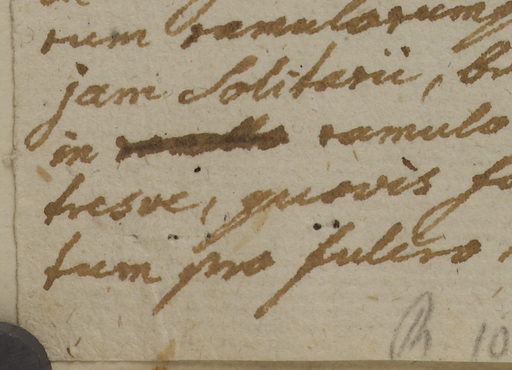 rum ramularumq
jam Solitarii, b
in ramulo
tresve, quovis fo
tum pro fulcro
R 10